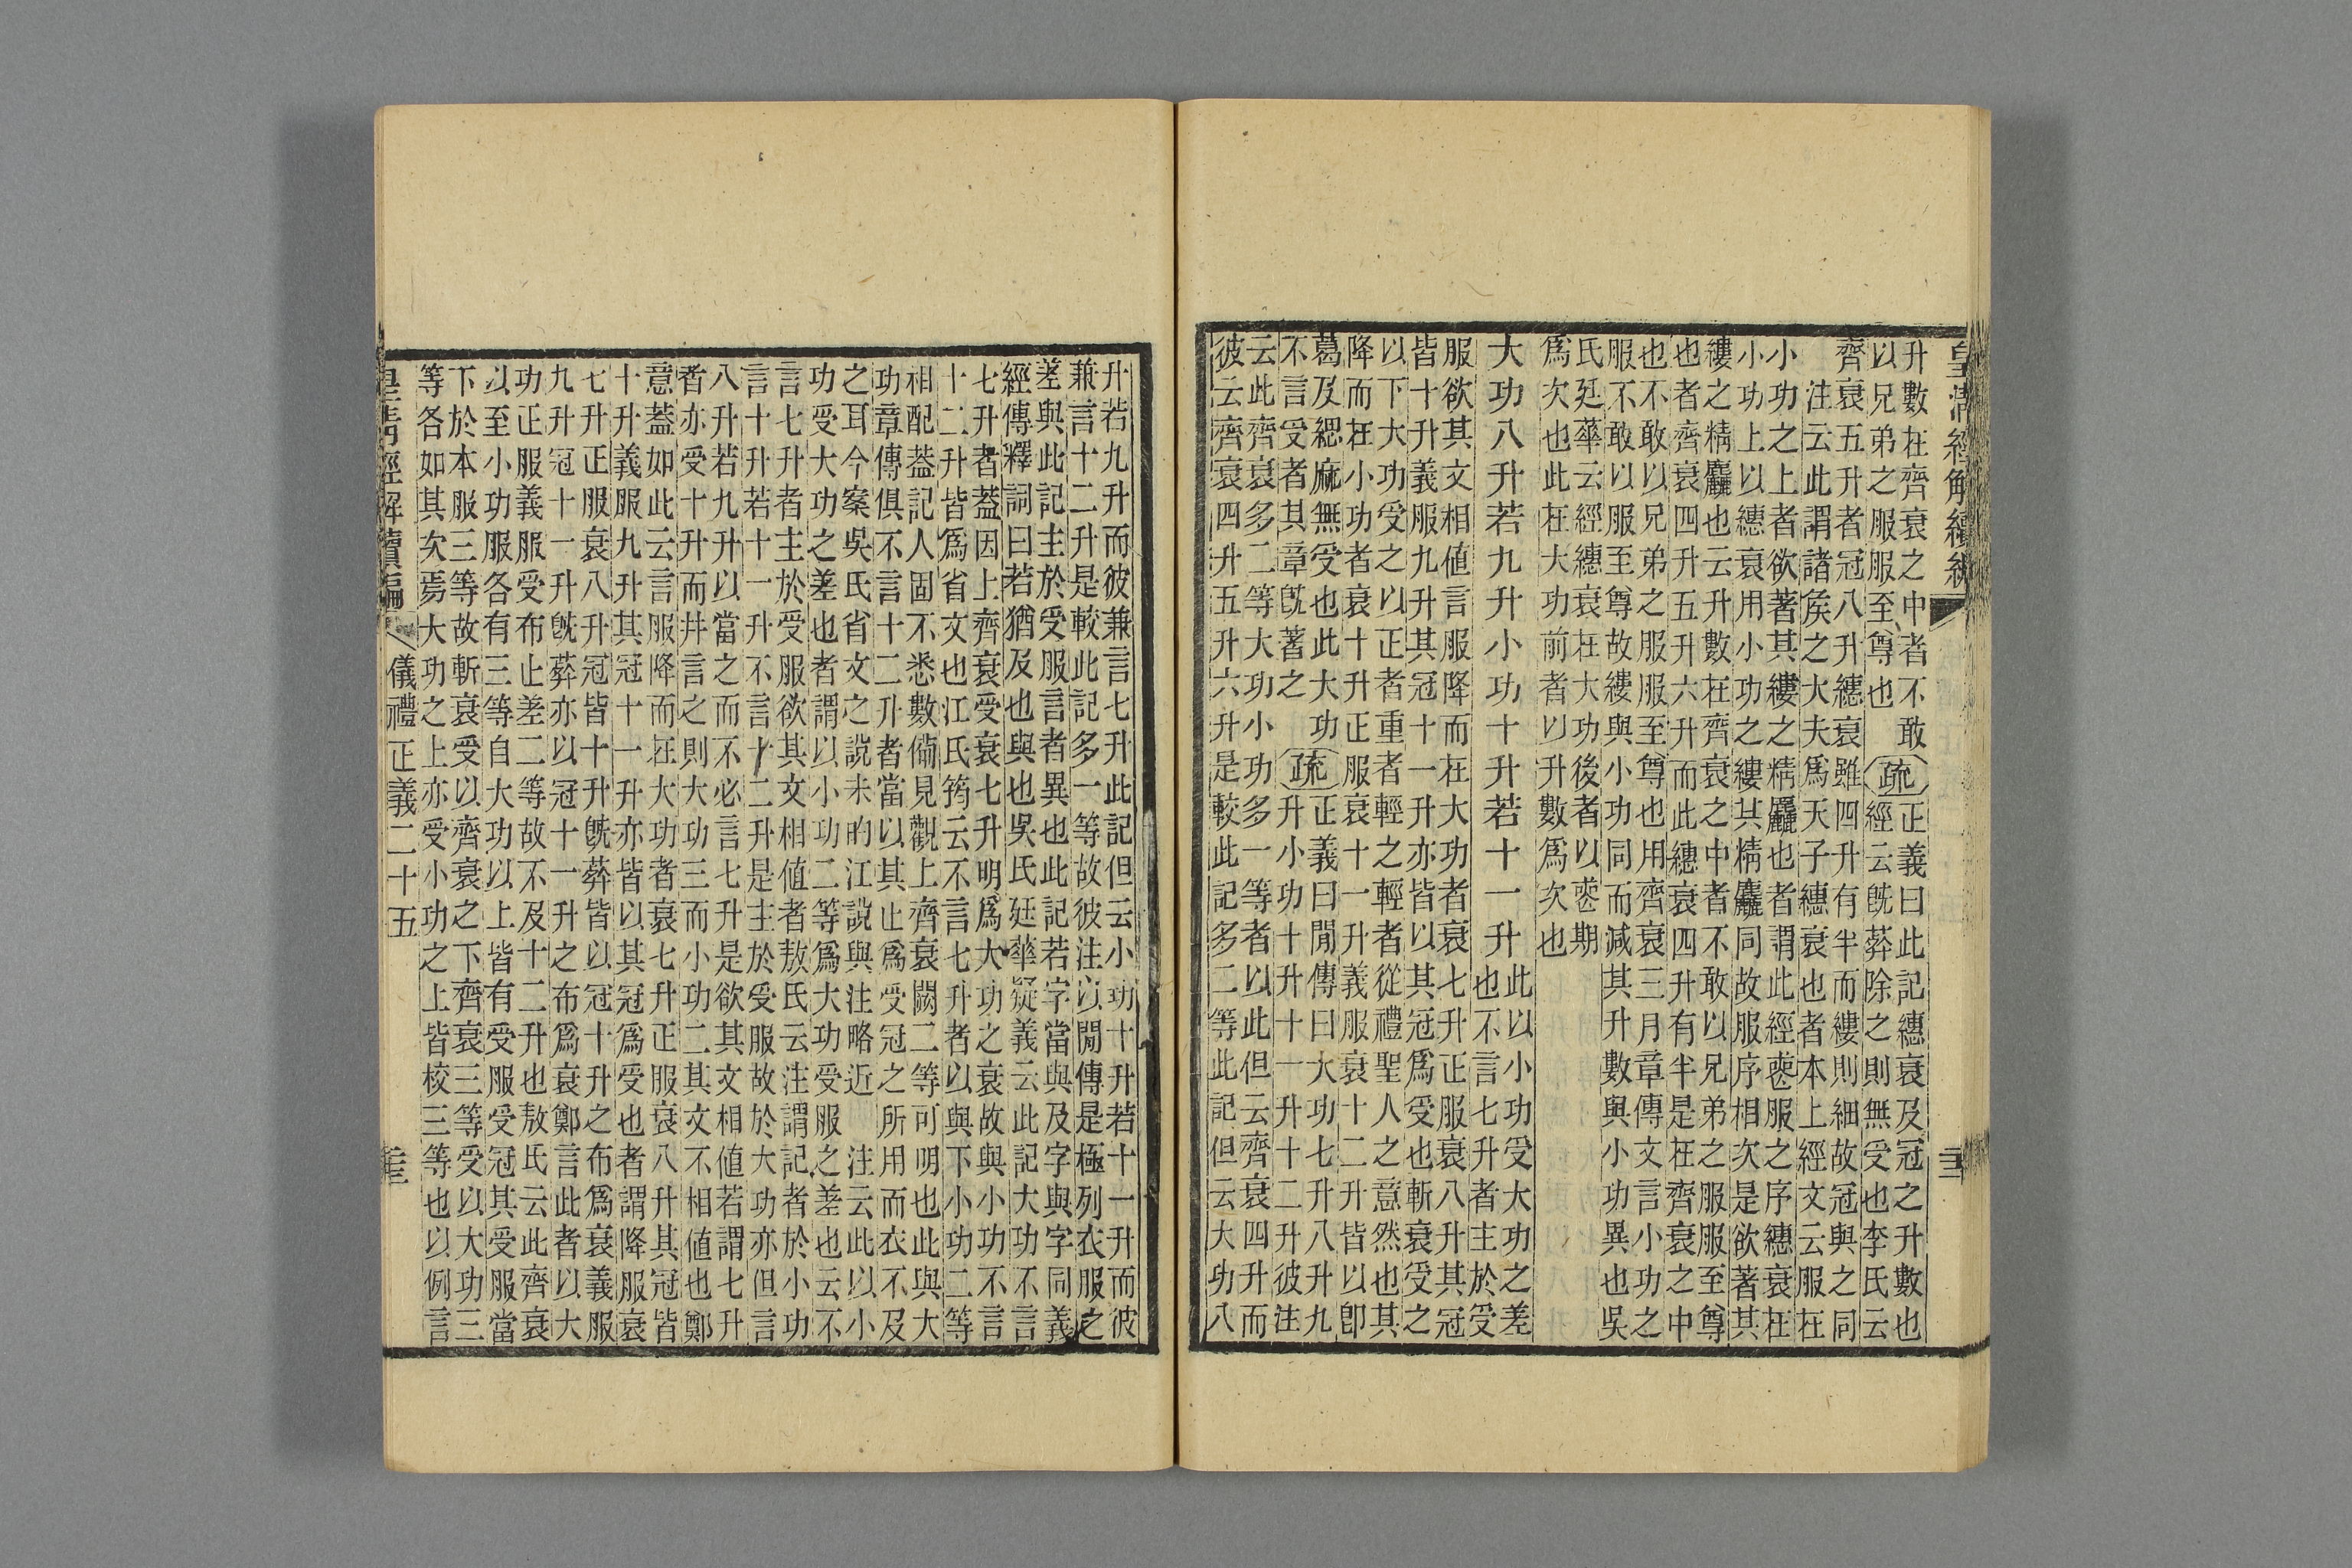 升數在齊衰之中者不敢
以兄弟之服服至尊也
疏
正義曰此記繐衰及冠之升數也
經云旣葬除之則無受也李氏云
齊衰五升者冠八升繐衰雖四升有半而縷則細故冠與之同
注云此謂諸侯之大夫爲天子繐衰也者本上經文云服在
小功之上者欲著其縷之精麤也者謂此經䘮服之序繐衰在
小功上以繐衰用小功之縷其精麤同故服序相次是欲著其
縷之精麤也云升數在齊衰之中者不敢以兄弟之服服至尊
也者齊衰四升五升六升而此繐衰四升有半是在齊衰之中
也不敢以兄弟之服服至尊也用齊衰三月章傳文言小功之
服不敢以服至尊故縷與小功同而減其升數與小功異也吳
氏廷華云經繐衰在大功後者以䘮期
爲次也此在大功前者以升數爲次也
大功八升若九升小功十升若十一升
此以小功受大功之差
也不言七升者主於受
服欲其文相値言服降而在大功者衰七升正服衰八升其冠
皆十升義服九升其冠十一升亦皆以其冠爲受也斬衰受之
以下大功受之以正者重者輕之輕者從禮聖人之意然也其
降而在小功者衰十升正服衰十一升義服衰十二升皆以卽
葛及緦麻無受也此大功
不言受者其章旣著之
疏
正義曰閒傳曰大功七升八升九
升小功十升十一升十二升彼注
云此齊衰多二等大功小功多一等者以此但云齊衰四升而
彼云齊衰四升五升六升是較此記多二等此記但云大功八
升若九升而彼兼言七升此記但云小功十升若十一升而彼
兼言十二升是較此記多一等故彼注以閒傳是極列衣服之
差與此記主於受服言者異也此記若字當與及字與字同義
經傳釋詞曰若猶及也與也吳氏廷華疑義云此記大功不言
七升者蓋因上齊衰受衰七升明爲大功之衰故與小功不言
十二升皆爲省文也江氏筠云不言七升者以與下小功二等
相配蓋記人固不悉數備見觀上齊衰闕二等可明也此與大
功章傳俱不言十二升者當以其止爲受冠之所用而衣不及
之耳今案吳氏省文之說未昀江說與注略近　注云此以小
功受大功之差也者謂以小功二等爲大功受服之差也云不
言七升者主於受服欲其文相値者敖氏云注謂記者於小功
言十升若十一升不言十二升是主於受服故於大功亦但言
八升若九升以當之而不必言七升是欲其文相値若謂七升
者亦受十升而幷言之則大功三而小功二其文不相値也鄭
意蓋如此云言服降而在大功者衰七升正服衰八升其冠皆
十升義服九升其冠十一升亦皆以其冠爲受也者謂降服衰
七升正服衰八升冠皆十升旣葬皆以冠十升之布爲衰義服
九升冠十一升旣葬亦以冠十一升之布爲衰鄭言此者以大
功正服義服受布止差二等故不及十二升也敖氏云此齊衰
以至小功服各有三等自大功以上皆有受服受冠其受服當
下於本服三等故斬衰受以齊衰之下齊衰三等受以大功三
等各如其次焉大功之上亦受小功之上皆校三等也以例言
皇清經解續編
儀禮正義二十五